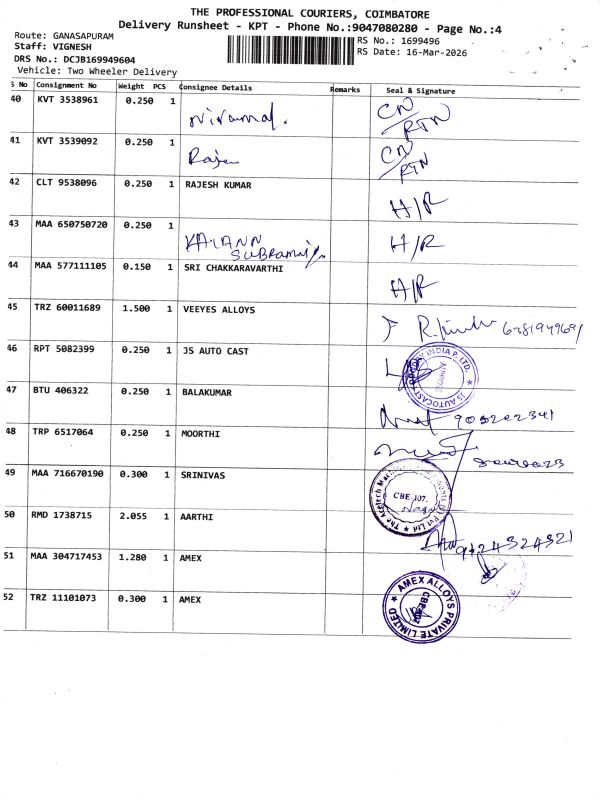 THE PROFESSIONAL COURIERS, COIMBATORE
Delivery Runsheet - KPT - Phone No.:9047080280 - Page No.:4
Route: GANASAPURAM
RS No.: 1699496
Staff: VIGNESH
RS Date: 16-Mar-2026
DRS No.: DCJB169949604
Vehicle: Two Wheeler Delivery
S No Consignment No Weight PCS Consignee Details Remarks Seal & Signature
40 KVT 3538961 0.250 1 Niramal. CN/RTN
41 KVT 3539092 0.250 1 CN/RTN
42 CLT 9538096 0.250 1 RAJESH KUMAR H/R
43 MAA 650750720 0.250 1 H/R
44 MAA 577111105 0.150 1 SRI CHAKKARAVARTHI H/R
45 TRZ 60011689 1.500 1 VEEYES ALLOYS
46 RPT 5082399 0.250 1 JS AUTO CAST
47 BTU 406322 0.250 1 BALAKUMAR
48 TRP 6517064 0.250 1 MOORTHI
49 MAA 716670190 0.300 1 SRINIVAS CBE 107.
50 RMD 1738715 2.055 1 AARTHI
51 MAA 304717453 1.280 1 AMEX
52 TRZ 11101073 0.300 1 AMEX AMEX ALLOYS PRIVATE LIMITED